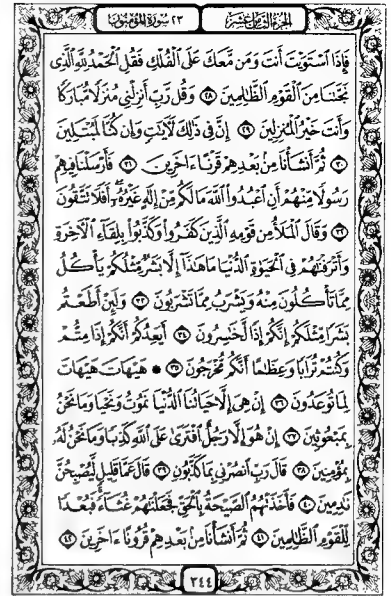 الجزء الثامن عشر ٢٣ سورة المؤمنون
فَإِذَا ٱسْتَوَيْتَ أَنتَ وَمَن مَّعَكَ عَلَى ٱلْفُلْكِ فَقُلِ ٱلْحَمْدُ لِلَّهِ ٱلَّذِى
نَجَّىٰنَا مِنَ ٱلْقَوْمِ ٱلظَّٰلِمِينَ ٢٨ وَقُل رَّبِّ أَنزِلْنِى مُنزَلًا مُّبَارَكًا
وَأَنتَ خَيْرُ ٱلْمُنزِلِينَ ٢٩ إِنَّ فِى ذَٰلِكَ لَءَايَٰتٍ وَإِن كُنَّا لَمُبْتَلِينَ
٣٠ ثُمَّ أَنشَأْنَا مِنۢ بَعْدِهِمْ قَرْنًا ءَاخَرِينَ ٣١ فَأَرْسَلْنَا فِيهِمْ
رَسُولًا مِّنْهُمْ أَنِ ٱعْبُدُوا۟ ٱللَّهَ مَا لَكُم مِّنْ إِلَٰهٍ غَيْرُهُۥٓ أَفَلَا تَتَّقُونَ
٣٢ وَقَالَ ٱلْمَلَأُ مِن قَوْمِهِ ٱلَّذِينَ كَفَرُوا۟ وَكَذَّبُوا۟ بِلِقَآءِ ٱلْءَاخِرَةِ
وَأَتْرَفْنَٰهُمْ فِى ٱلْحَيَوٰةِ ٱلدُّنْيَا مَا هَٰذَآ إِلَّا بَشَرٌ مِّثْلُكُمْ يَأْكُلُ
مِمَّا تَأْكُلُونَ مِنْهُ وَيَشْرَبُ مِمَّا تَشْرَبُونَ ٣٣ وَلَئِنْ أَطَعْتُم
بَشَرًا مِّثْلَكُمْ إِنَّكُمْ إِذًا لَّخَٰسِرُونَ ٣٤ أَيَعِدُكُمْ أَنَّكُمْ إِذَا مِتُّمْ
وَكُنتُمْ تُرَابًا وَعِظَٰمًا أَنَّكُم مُّخْرَجُونَ ٣٥ • هَيْهَاتَ هَيْهَاتَ
لِمَا تُوعَدُونَ ٣٦ إِنْ هِىَ إِلَّا حَيَاتُنَا ٱلدُّنْيَا نَمُوتُ وَنَحْيَا وَمَا نَحْنُ
بِمَبْعُوثِينَ ٣٧ إِنْ هُوَ إِلَّا رَجُلٌ ٱفْتَرَىٰ عَلَى ٱللَّهِ كَذِبًا وَمَا نَحْنُ لَهُۥ
بِمُؤْمِنِينَ ٣٨ قَالَ رَبِّ ٱنصُرْنِى بِمَا كَذَّبُونِ ٣٩ قَالَ عَمَّا قَلِيلٍ لَّيُصْبِحُنَّ
نَٰدِمِينَ ٤٠ فَأَخَذَتْهُمُ ٱلصَّيْحَةُ بِٱلْحَقِّ فَجَعَلْنَٰهُمْ غُثَآءً فَبُعْدًا
لِّلْقَوْمِ ٱلظَّٰلِمِينَ ٤١ ثُمَّ أَنشَأْنَا مِنۢ بَعْدِهِمْ قُرُونًا ءَاخَرِينَ ٤٢
٣٤٤